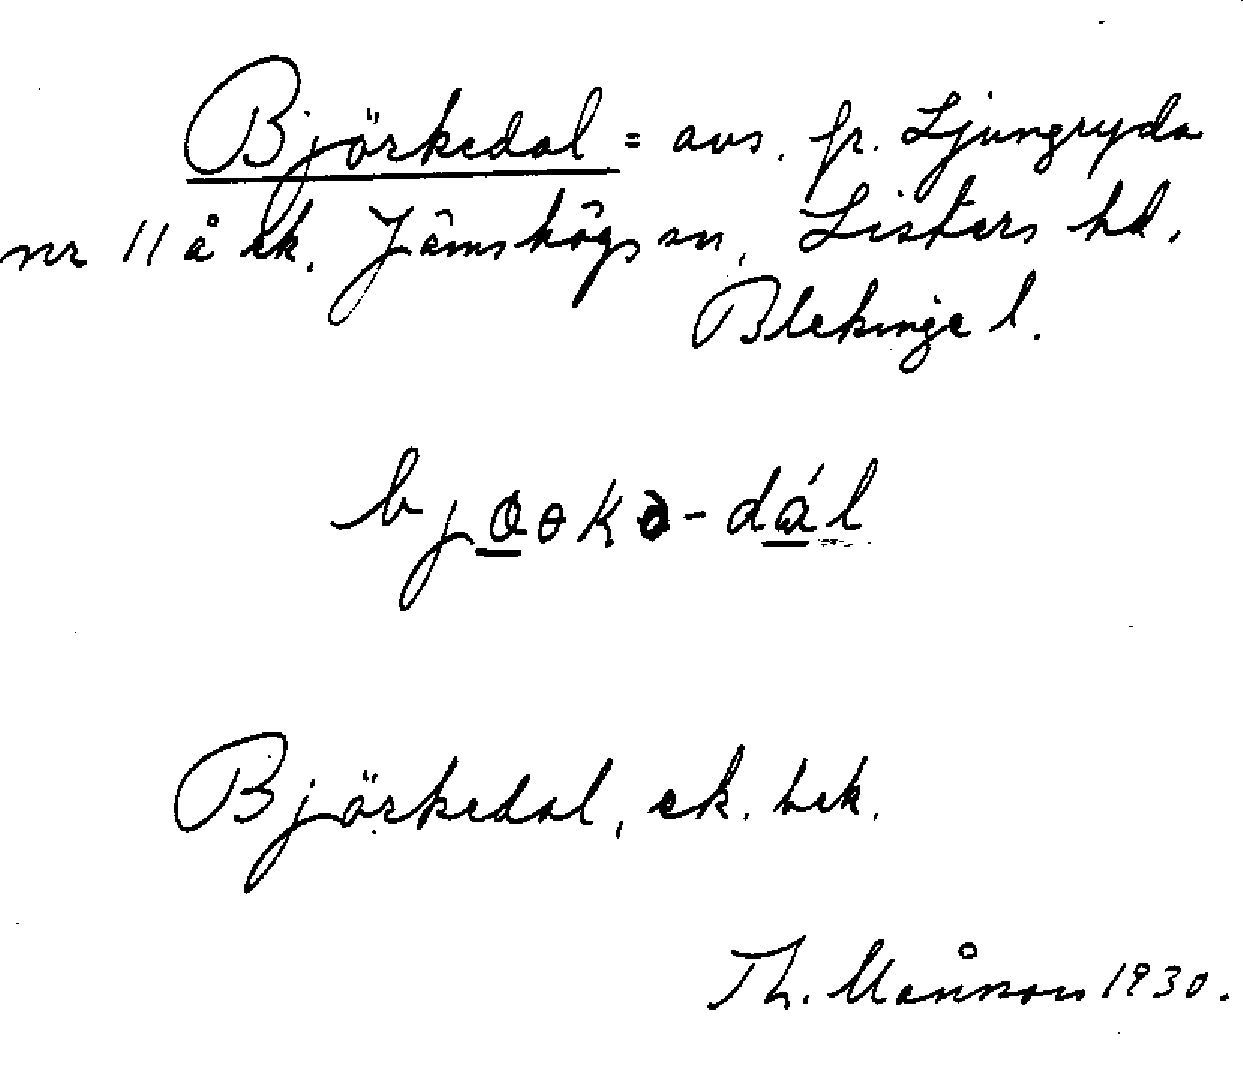 Björkedal = avs. fr. Ljungryda
nr 11 å ek. Jämshögs sn, Listers hd.
Blekinge l.
Björkedal, ek. bek.
Th. Månson 1930.